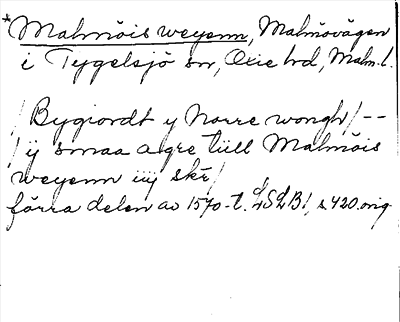 *Malmöis weyenn, Malmövägen
i Tygelsjö sn, Oxie hd, Malm. l.
/Bygiordt y Norre wongh/--
/ij smaa agre tüll Malmöis
weyenn iiij skē/
förra delen av 1570-t. LSLB1, s 420. orig.